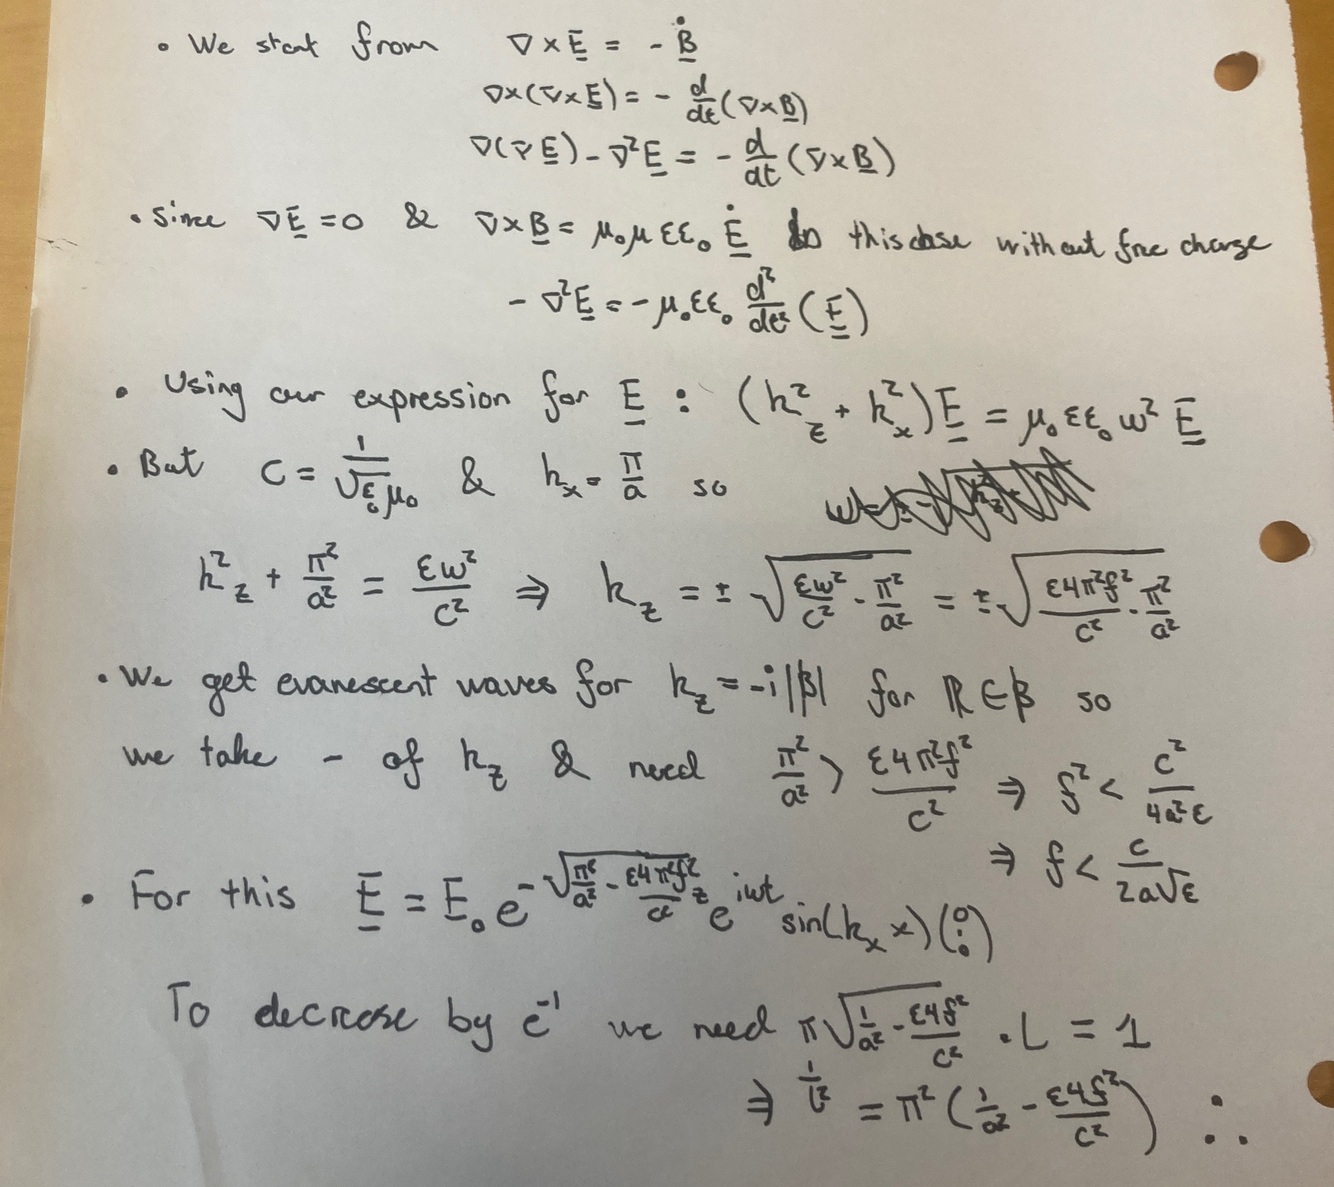 • We start from ∇×E̲ = - Ḃ̲
∇×(∇×E̲) = - d/dt (∇×B̲)
∇(∇E̲) - ∇²E̲ = - d/dt (∇×B̲)
• Since ∇E̲ = 0 & ∇×B̲ = μ₀μεε₀ Ė̲ In this case without free charge
- ∇²E̲ = - μ₀εε₀ d²/dt² (E̲)
• Using our expression for E̲ : (k_z² + k_x²)E̲ = μ₀εε₀ω² E̲
• But C = 1/√(ε₀μ₀) & k_x = π/a so
k_z² + π²/a² = εω²/c² ⇒ k_z = ± √(εω²/c² - π²/a²) = ± √(ε4π²f²/c² - π²/a²)
• We get evanescent waves for k_z = -i|β| for ℝ∈β so
we take - of k_z & need π²/a² > ε4π²f²/c² ⇒ f² < c²/4a²ε
⇒ f < c/2a√ε
• For this E̲ = E₀ e^(-√(π²/a² - ε4π²f²/c²) z) e^(iωt) sin(k_x x) (0 1 0)
To decrease by e⁻¹ we need π√(1/a² - ε4f²/c²) · L = 1
⇒ 1/L² = π² (1/a² - ε4f²/c²) ∴